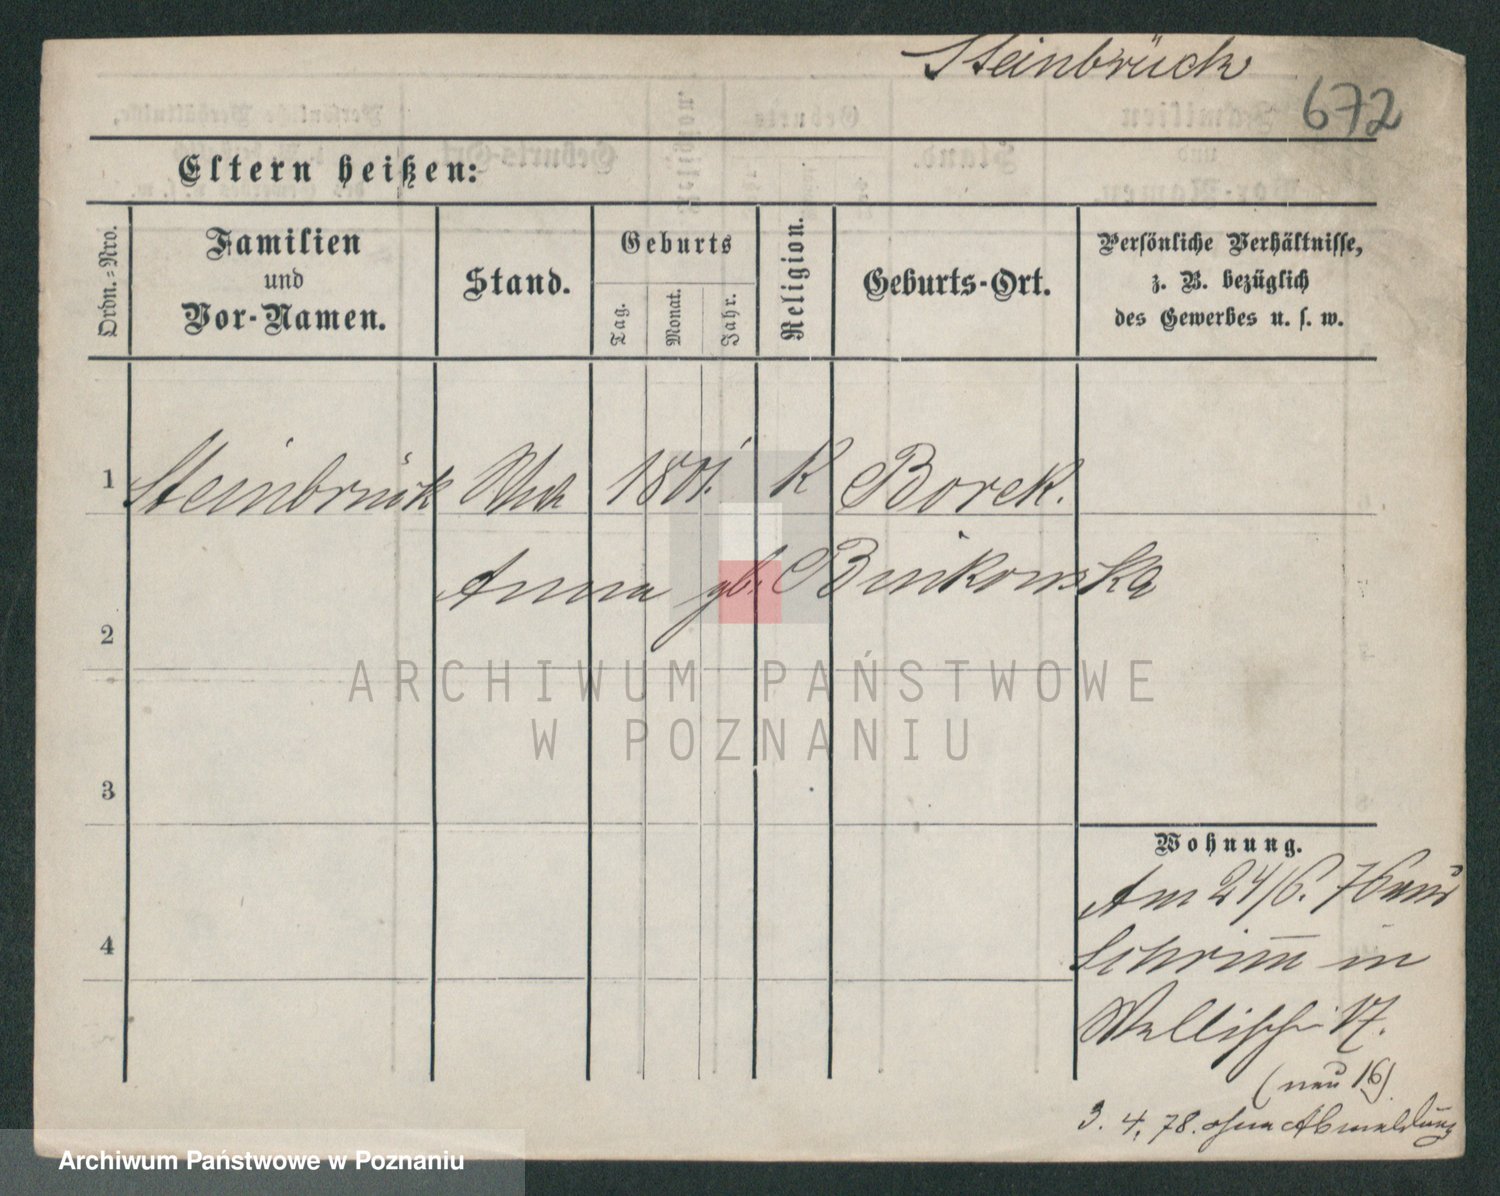 Steinbrück
672
Eltern heißen:
Ordn.-Nro.
Familien
und
Vor-Namen.
Stand.
Geburts
Tag.
Monat.
Jahr.
Religion.
Geburts-Ort.
Persönliche Verhältnisse,
z. B. bezüglich
des Gewerbes u. s. w.
1 Steinbrück 1801. K Borek.
Anna gb. Binkowska
2
ARCHIWUM PAŃSTWOWE
W POZNANIU
3
Wohnung.
Am 24/6. 76 aus
4
Schrimm in
Wallischei 17.
(neu 16)
3. 4. 78. ohne Abmeldung
Archiwum Państwowe w Poznaniu